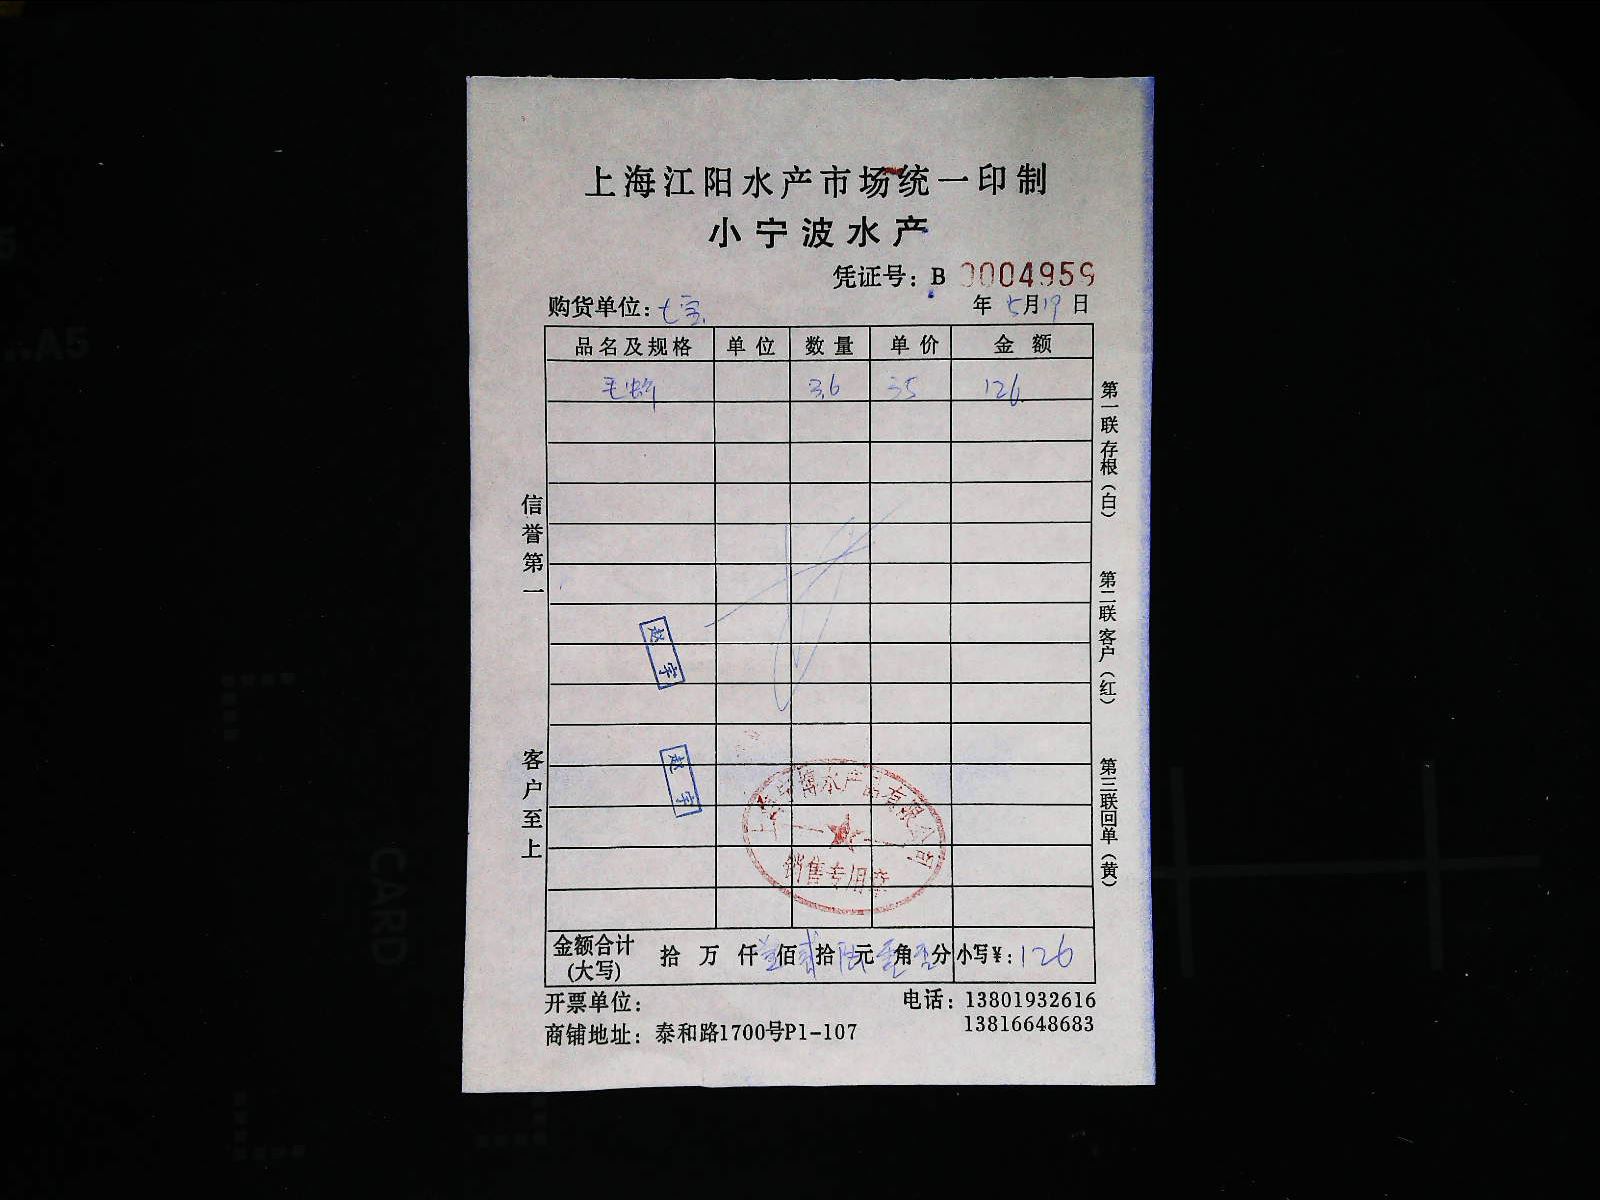 上海江阳水产市场统一印制
小宁波水产
凭证号：B 0004959
购货单位：七宝 年 5月19日
品名及规格 单位 数量 单价 金额
毛蚶 3.6 35 126
信誉第一
客户至上
第一联 存根（白）
第二联 客户（红）
第三联 回单（黄）
赵宇
赵宇
水产品有限公司
销售专用章
金额合计（大写） 拾 万 仟壹佰贰拾陆元零角零分 小写¥：126
开票单位： 电话：13801932616
13816648683
商铺地址：泰和路1700号P1-107
A5
CARD